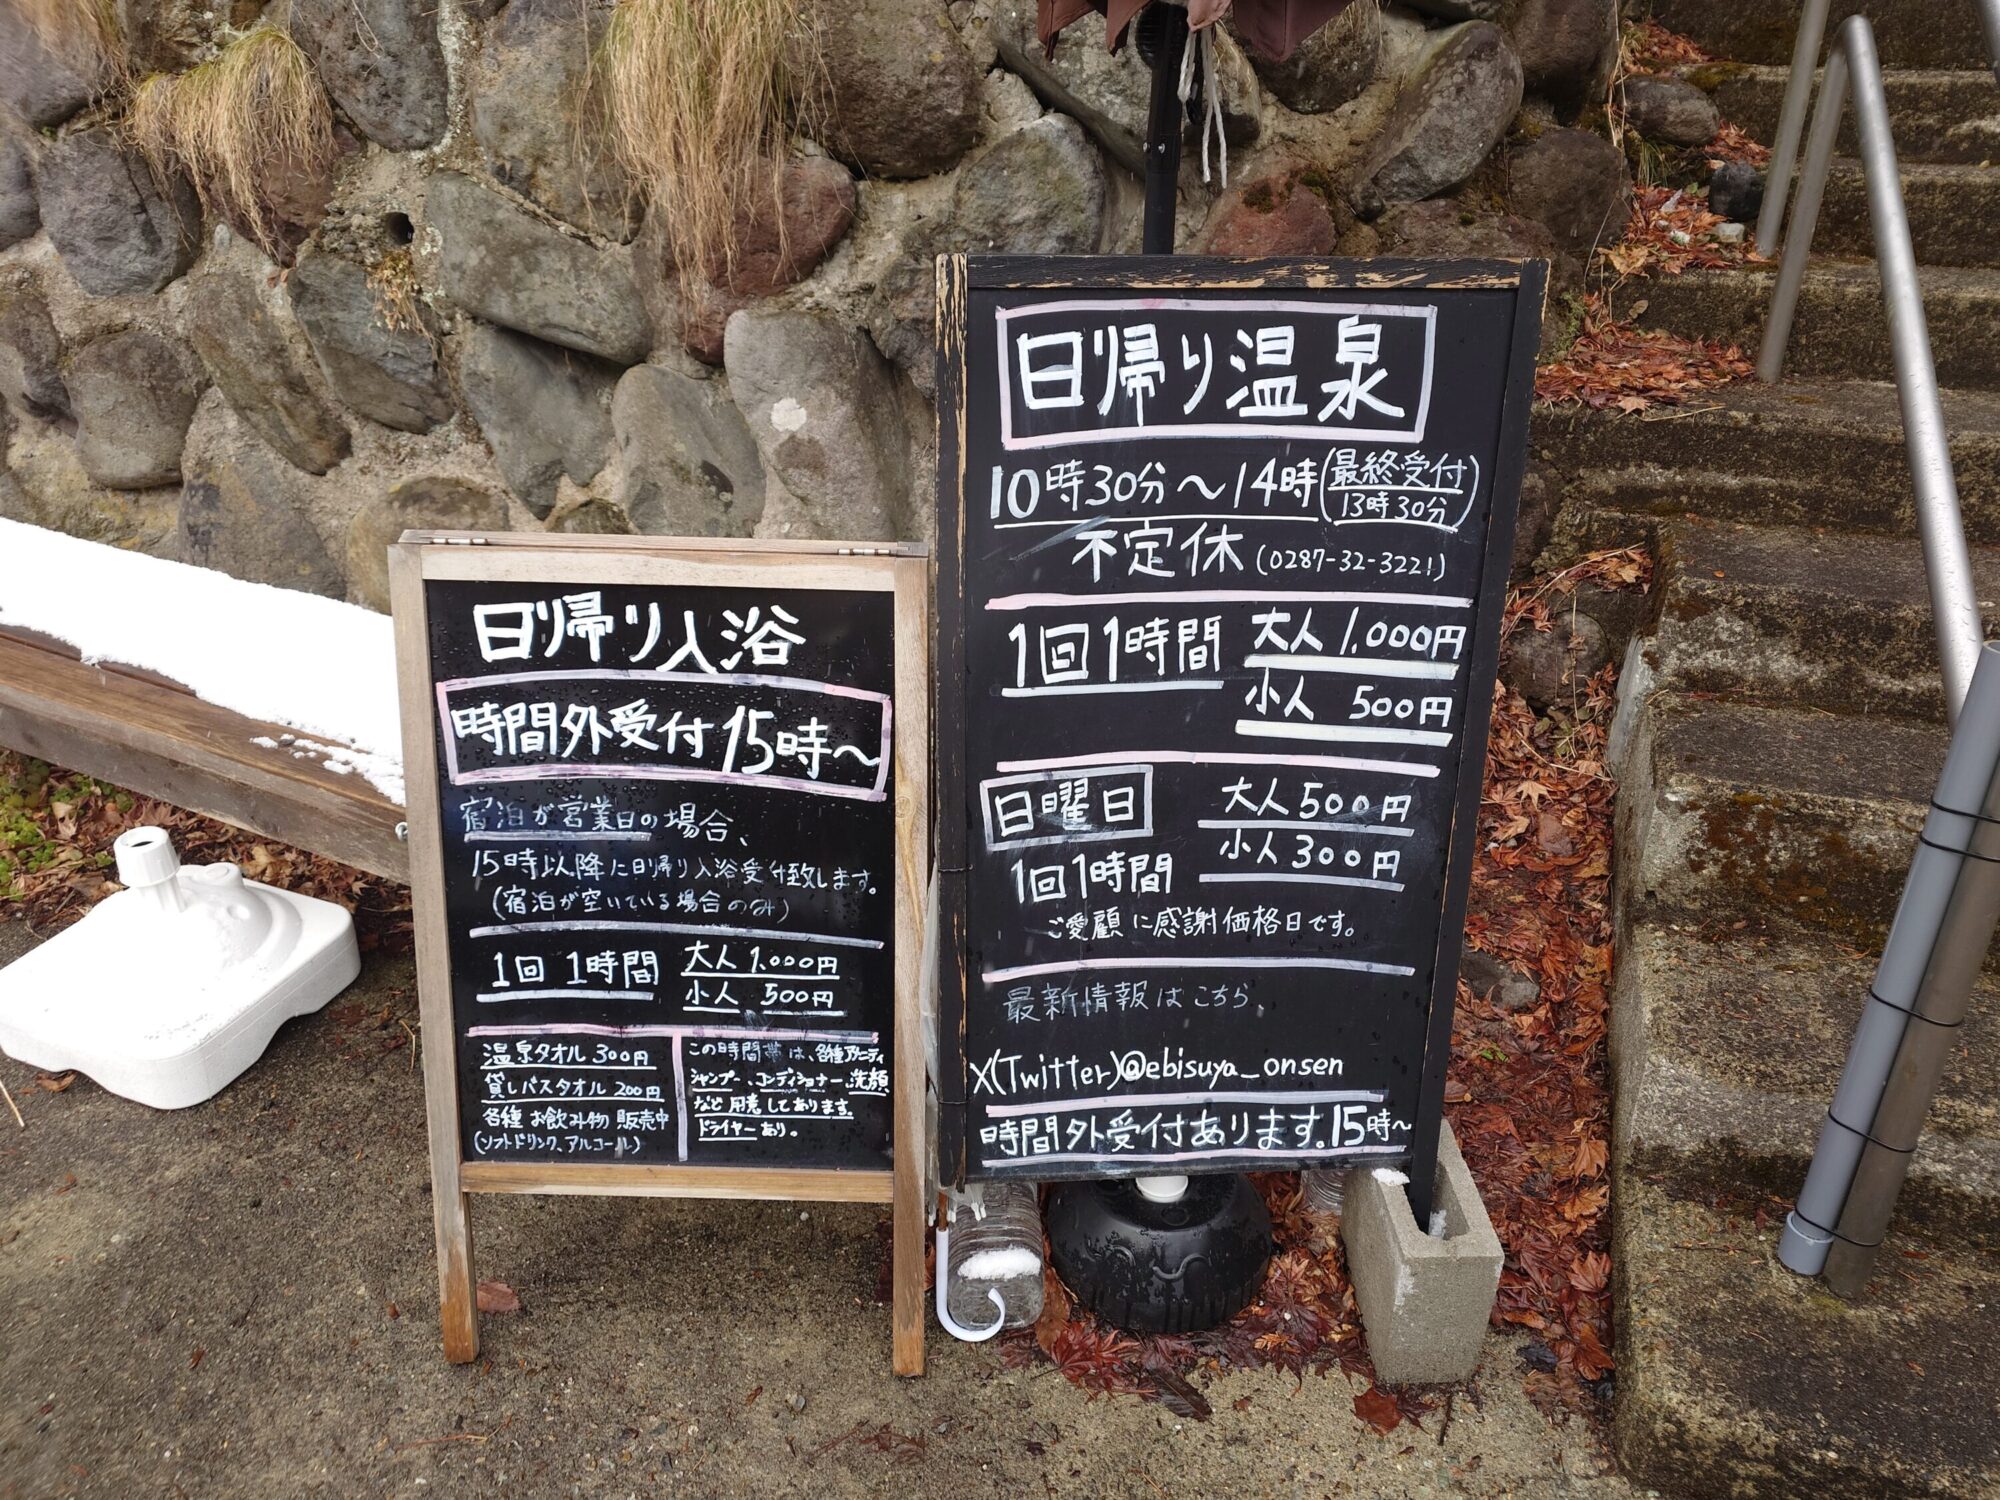 日帰り入浴
時間外受付15時～
宿泊が営業日の場合、
15時以降に日帰り入浴受付致します。
(宿泊が空いている場合のみ)
1回 1時間
大人 1,000円
小人 500円
温泉タオル 300円
貸しバスタオル 200円
各種 お飲み物 販売中
(ソフトドリンク、アルコール)
この時間帯は、各種アメニティ
シャンプー、コンディショナー、洗顔
など用意してあります。
ドライヤーあり。
日帰り温泉
10時30分～14時(最終受付
13時30分)
不定休(0287-32-3221)
1回1時間
大人 1,000円
小人 500円
日曜日
1回1時間
大人 500円
小人 300円
ご愛顧に感謝価格日です。
最新情報はこちら、
X(Twitter)@ebisuya_onsen
時間外受付あります。15時～